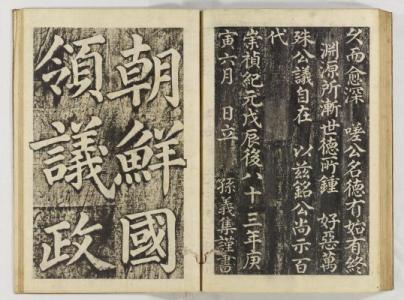 久而愈深 嗟公名德有始有終
淵源所漸世德所鍾 好惡萬
殊公議自在 以玆銘公尚示百
代
崇禎紀元戊辰後八十三年庚
寅六月 日立 孫義集謹書
朝鮮國
領議政